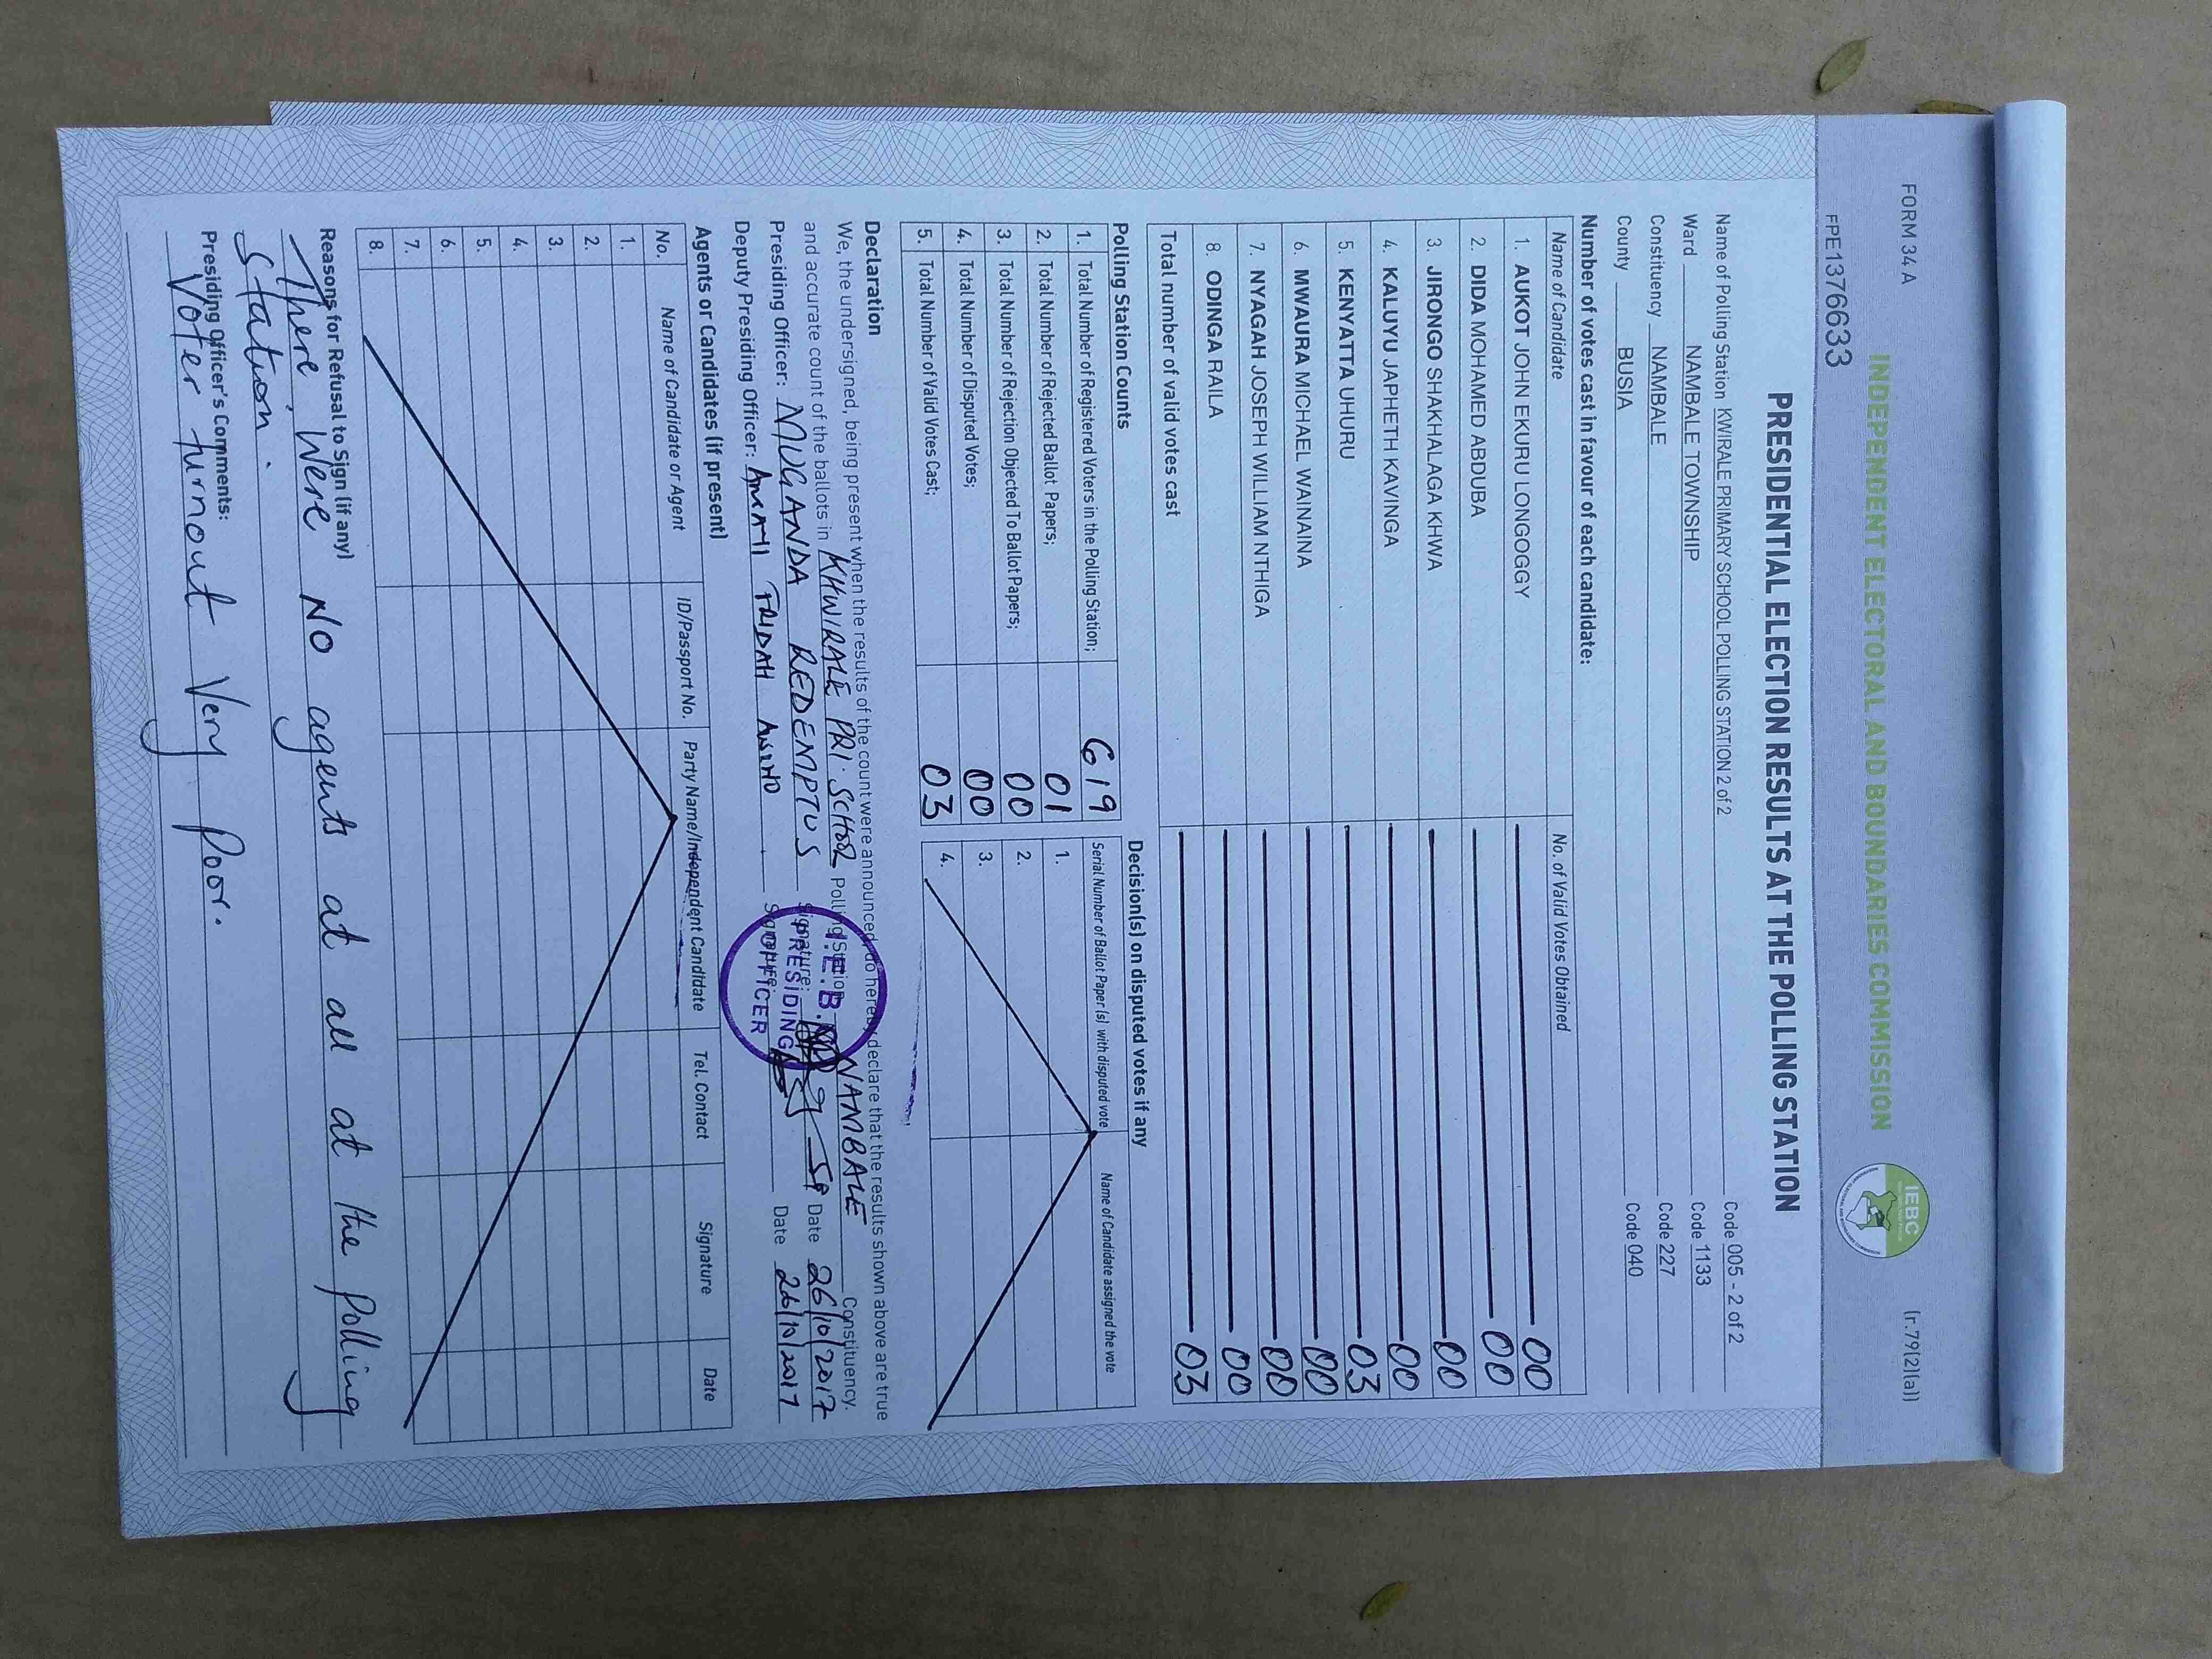 FORM 34 A
(r.79(2)(a))
INDEPENDENT ELECTORAL AND BOUNDARIES COMMISSION
IEBC
FPE1376633
PRESIDENTIAL ELECTION RESULTS AT THE POLLING STATION
Name of Polling Station KWIRALE PRIMARY SCHOOL POLLING STATION 2 of 2 Code 005 - 2 of 2
Ward NAMBALE TOWNSHIP Code 1133
Constituency NAMBALE Code 227
County BUSIA Code 040
Number of votes cast in favour of each candidate:
Name of Candidate No. of Valid Votes Obtained
1. AUKOT JOHN EKURU LONGOGGY 00
2. DIDA MOHAMED ABDUBA 00
3. JIRONGO SHAKHALAGA KHWA 00
4. KALUYU JAPHETH KAVINGA 00
5. KENYATTA UHURU 03
6. MWAURA MICHAEL WAINAINA 00
7. NYAGAH JOSEPH WILLIAM NTHIGA 00
8. ODINGA RAILA 00
Total number of valid votes cast 03
Polling Station Counts
1. Total Number of Registered Voters in the Polling Station; 619
2. Total Number of Rejected Ballot Papers; 01
3. Total Number of Rejection Objected To Ballot Papers; 00
4. Total Number of Disputed Votes; 00
5. Total Number of Valid Votes Cast; 03
Decision(s) on disputed votes if any
Serial Number of Ballot Paper (s) with disputed vote Name of Candidate assigned the vote
1.
2.
3.
4.
Declaration
We, the undersigned, being present when the results of the count were announced, do hereby declare that the results shown above are true
and accurate count of the ballots in KHWIRALE PRI. SCHOOL Polling Station NAMBALE Constituency.
Presiding Officer: MUGANDA REDEMPTUS Signature: Date 26/10/2017
Deputy Presiding Officer: Signature: Date 26/10/2017
I.E.B.C
PRESIDING
OFFICER
Agents or Candidates (if present)
No. Name of Candidate or Agent ID/Passport No. Party Name/Independent Candidate Tel. Contact Signature Date
1.
2.
3.
4.
5.
6.
7.
8.
Reasons for Refusal to Sign (if any)
There Were NO agents at all at the polling
Station.
Presiding Officer's Comments:
Voter turnout Very Poor.